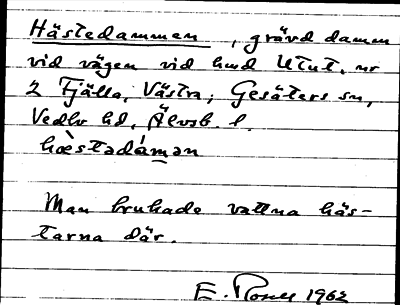 Hästedammen, grävd damm
vid vägen vid hmd Utut. nr
2 Fjälla, Västra; Gesäters sn,
Vedbo hd, Älvsb. l.
hæ̀stadáman
Man brukade vattna häs-
tarna där.
E. 1962